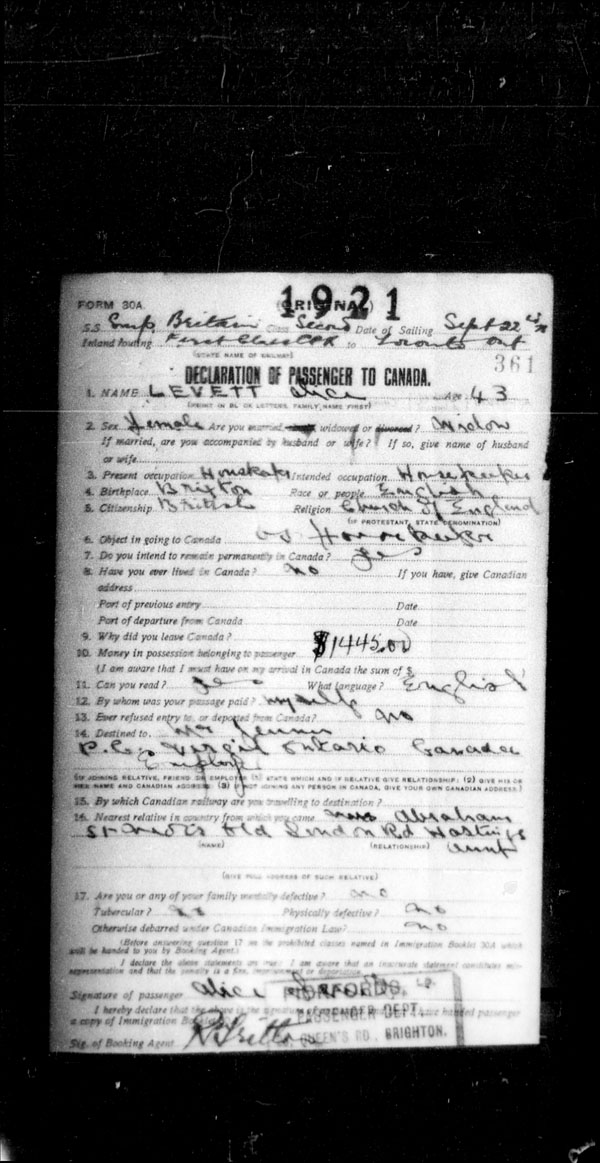 1921
FORM 30A (ORIGINAL)
S.S. Emp Britain Class Second Date of Sailing Sept 22
Inland Routing First Class to Toronto Ont
(STATE NAME OF RAILWAY)
361
DECLARATION OF PASSENGER TO CANADA.
1. NAME LEVETT Alice Age 43
(PRINT IN BLOCK LETTERS, FAMILY NAME FIRST)
2. Sex Female Are you married, single, widowed or divorced? Widow
If married, are you accompanied by husband or wife? If so, give name of husband
or wife
3. Present occupation Intended occupation Housekeeper
4. Birthplace Brixton Race or people English
5. Citizenship British Religion Church of England
(IF PROTESTANT, STATE DENOMINATION)
6. Object in going to Canada as Housekeeper
7. Do you intend to remain permanently in Canada? yes
8. Have you ever lived in Canada? no If you have, give Canadian
address
Port of previous entry Date
Port of departure from Canada Date
9. Why did you leave Canada?
10. Money in possession belonging to passenger $1445.00
(I am aware that I must have on my arrival in Canada the sum of $
11. Can you read? yes What language? English
12. By whom was your passage paid? myself
13. Ever refused entry to, or deported from Canada? no
14. Destined to. Mr
Virgil Ontario Canada
Employer
(IF JOINING RELATIVE, FRIEND OR EMPLOYER (1) STATE WHICH AND IF RELATIVE GIVE RELATIONSHIP; (2) GIVE HIS OR
HER NAME AND CANADIAN ADDRESS; (3) IF NOT JOINING ANY PERSON IN CANADA, GIVE YOUR OWN CANADIAN ADDRESS.)
15. By which Canadian railway are you travelling to destination?
16. Nearest relative in country from which you came Mrs Abraham
Old London Rd Hastings
(NAME) (RELATIONSHIP) Aunt
(GIVE FULL ADDRESS OF SUCH RELATIVE)
17. Are you or any of your family mentally defective? no
Tubercular? no Physically defective? no
Otherwise debarred under Canadian Immigration Law? no
(Before answering question 17 see the prohibited classes named in Immigration Booklet 30A which
will be handed to you by Booking Agent.)
I declare the above statements are true. I am aware that an inaccurate statement constitutes mis-
representation and that the penalty is a fine, imprisonment or deportation.
Signature of passenger Alice
I hereby declare that the above is the signature of handed passenger
a copy of Immigration Booklet
PASSENGER DEPT.
QUEEN'S RD, BRIGHTON.
Sig. of Booking Agent